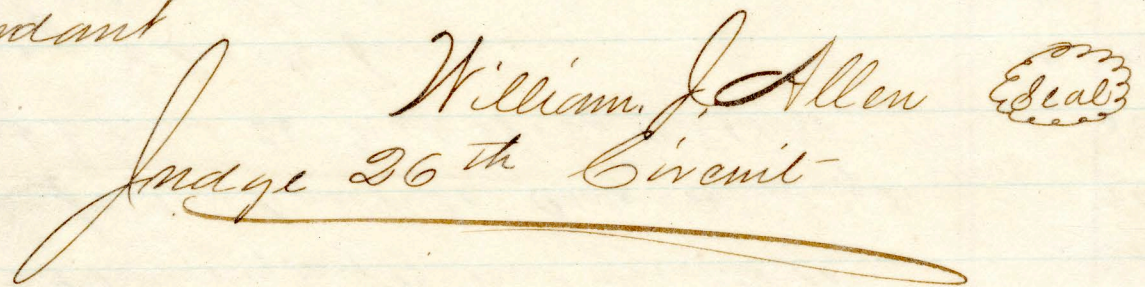 William. J. Allen Seal
Judge 26th Circuit